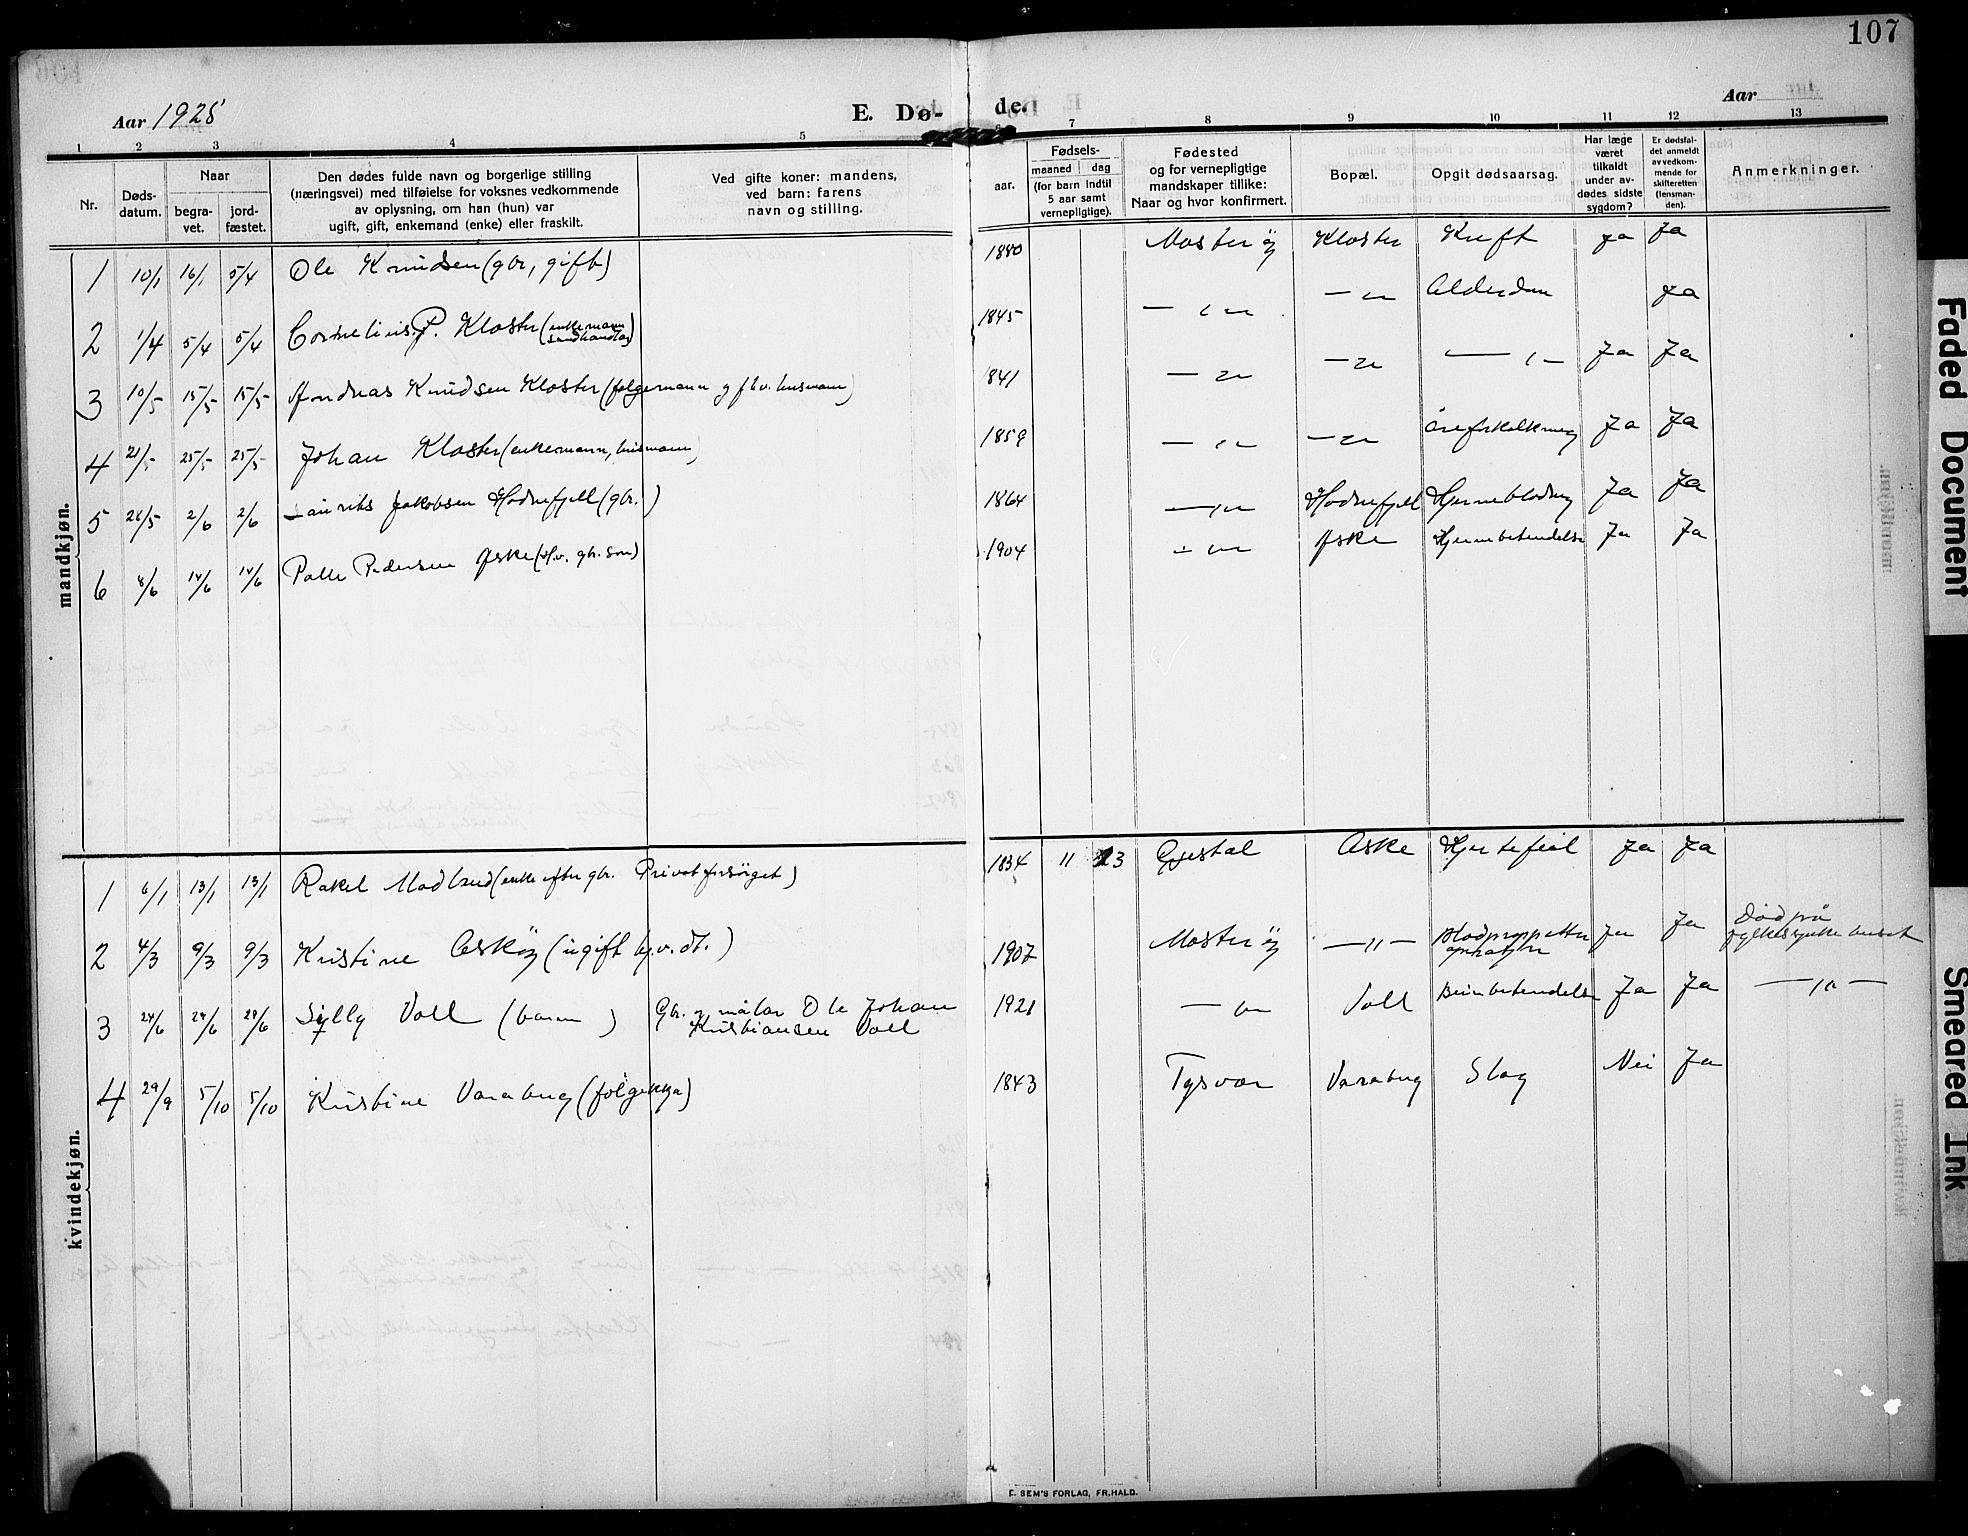 107
Aar 1925
E. Dø-
de.
Aar
1 2 3 4 5 7 8 9 10 11 12 13
Nr.
Døds-
datum.
Naar
begra-
vet.
jord-
fæstet.
Den dødes fulde navn og borgerlige stilling
(næringsvei) med tilføielse for voksnes vedkommende
av oplysning, om han (hun) var
ugift, gift, enkemand (enke) eller fraskilt.
Ved gifte koner: mandens,
ved barn: farens
navn og stilling.
aar.
Fødsels-
maaned dag
(for barn indtil
5 aar samt
vernepligtige).
Fødested
og for vernepligtige
mandskaper tillike:
Naar og hvor konfirmert.
Bopæl.
Opgit dødsaarsag.
Har læge
været
tilkaldt
under av-
dødes sidste
sygdom?
Er dødsfal-
det anmeldt
av vedkom-
mende for
skifteretten
(lensman-
den).
Anmerkninger.
mandkjøn.
1 10/1 16/1 5/4 Ole Knudsen (gbr, gift) 1880 Mosterøy Kloster Kreft ja ja
2 1/4 5/4 5/4 Cornelius P. Kloster (enkemann 1845 — " — — " — Alderdom ja
3 10/5 15/5 15/5 Andreas Knudsen Kloster (følgemann g fhv. husmann) 1841 — " — — " — — " — Ja Ja
4 21/5 25/5 25/5 Johan Kloster (enkemann, husmann) 1859 — " — — " — Åreforkalkning Ja Ja
5 2/6 2/6 Laurits Jakobsen Hodnefjell (gbr.) 1864 — " — Hodnefjell Hjerneblødning Ja Ja
6 8/6 14/6 14/6 Palle Pedersen Aske (hjv. gbr. søn) 1904 — " — Aske Hjernebetendelse Ja Ja
kvindekjøn.
1 6/1 13/1 13/1 Rakel Madland (enke efter gbr. Privat forsørget) 1834 11 23 Gjestal Aske Hjertefeil Ja Ja
2 4/3 9/3 9/3 Kristine Askøy (ugift hj.v. dt.) 1907 Mosterøy — " — Blodpropp etter
operasjon Ja Ja Død på
fylkessjukehuset
3 24/6 29/6 29/6 Silly Voll (barn) Gbr. og målar Ole Johan
Kristiansen Voll 1921 — " — Voll Beinbetendelse Ja Ja — " —
4 29/9 5/10 5/10 Kristine Varaberg (følgekkja) 1843 Tysvær Varaberg Slag Nei Ja
E. SEM'S FORLAG, FR.HALD.
Faded Document
Smeared Ink